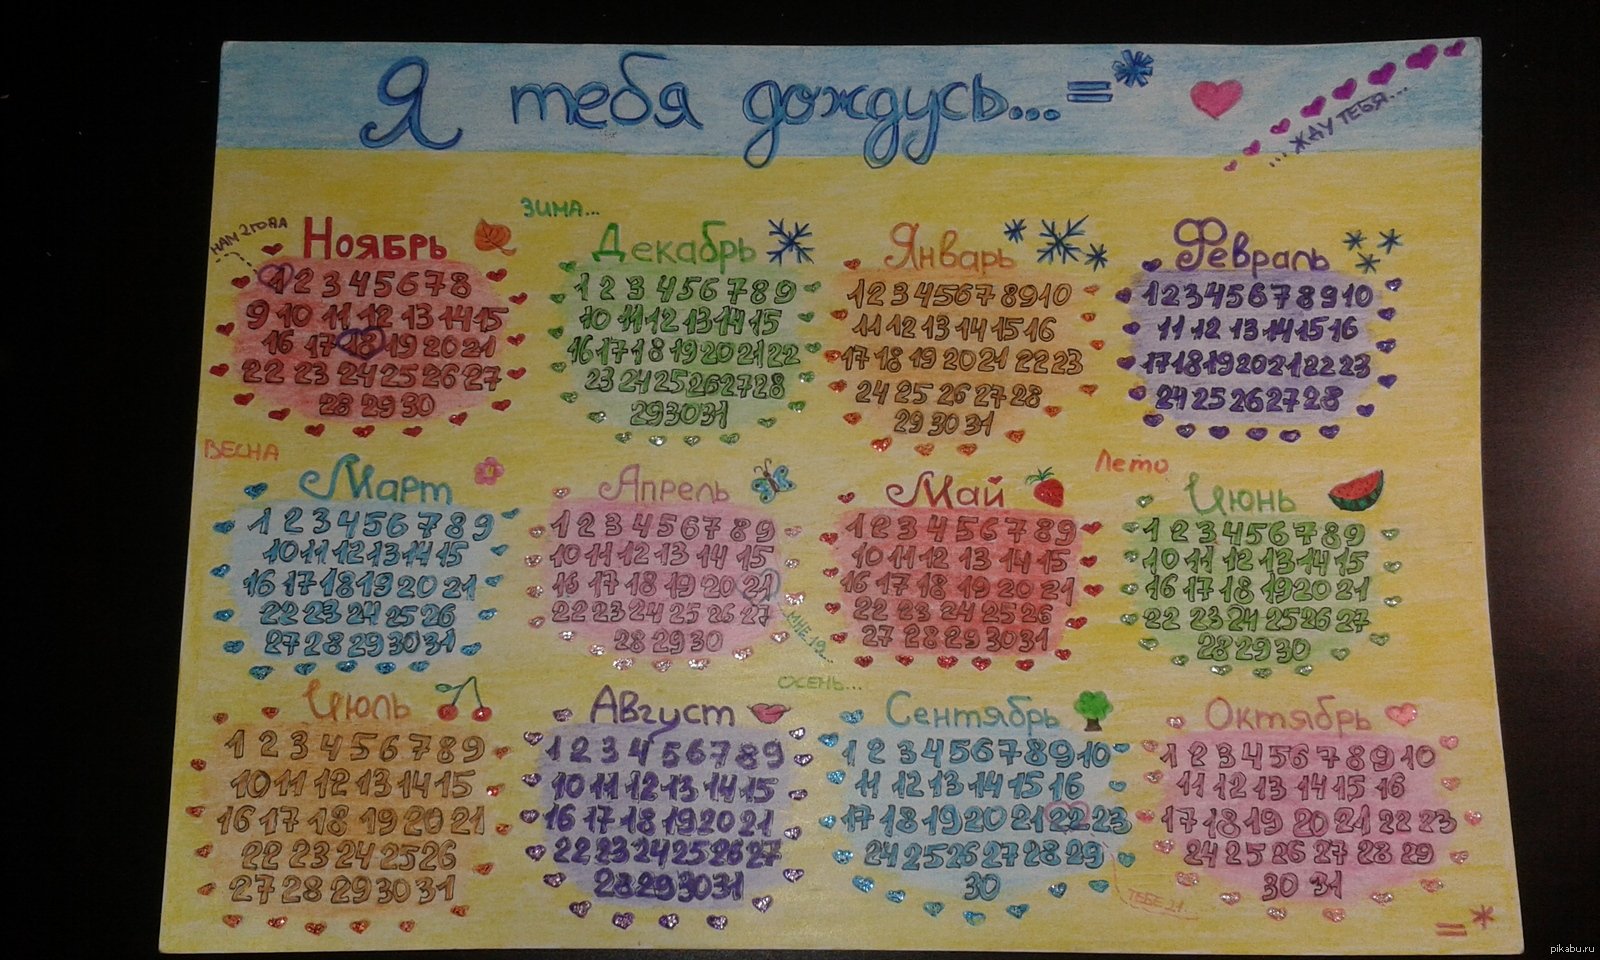 Я тебя дождусь...=*
...ЖДУ ТЕБЯ...
ЗИМА...
НАМ 2 ГОДА
Ноябрь
1 2 3 4 5 6 7 8
9 10 11 12 13 14 15
16 17 18 19 20 21
22 23 24 25 26 27
28 29 30
Декабрь
1 2 3 4 5 6 7 8 9
10 11 12 13 14 15
16 17 18 19 20 21 22
23 24 25 26 27 28
29 30 31
Январь
1 2 3 4 5 6 7 8 9 10
11 12 13 14 15 16
17 18 19 20 21 22 23
24 25 26 27 28
29 30 31
Февраль
1 2 3 4 5 6 7 8 9 10
11 12 13 14 15 16
17 18 19 20 21 22 23
24 25 26 27 28
ВЕСНА
Март
1 2 3 4 5 6 7 8 9
10 11 12 13 14 15
16 17 18 19 20 21
22 23 24 25 26
27 28 29 30 31
Апрель
1 2 3 4 5 6 7 8 9
10 11 12 13 14 15
16 17 18 19 20 21
22 23 24 25 26 27
28 29 30
МНЕ 19...
Май
1 2 3 4 5 6 7 8 9
10 11 12 13 14 15
16 17 18 19 20 21
22 23 24 25 26
27 28 29 30 31
Лето
Июнь
1 2 3 4 5 6 7 8 9
10 11 12 13 14 15
16 17 18 19 20 21
22 23 24 25 26 27
28 29 30
Июль
1 2 3 4 5 6 7 8 9
10 11 12 13 14 15
16 17 18 19 20 21
22 23 24 25 26
27 28 29 30 31
Август
1 2 3 4 5 6 7 8 9
10 11 12 13 14 15
16 17 18 19 20 21
22 23 24 25 26 27
28 29 30 31
ОСЕНЬ...
Сентябрь
1 2 3 4 5 6 7 8 9 10
11 12 13 14 15 16
17 18 19 20 21 22 23
24 25 26 27 28 29
30
ТЕБЕ 21...
Октябрь
1 2 3 4 5 6 7 8 9 10
11 12 13 14 15 16
17 18 19 20 21 22 23
24 25 26 27 28 29
30 31
=*
pikabu.ru